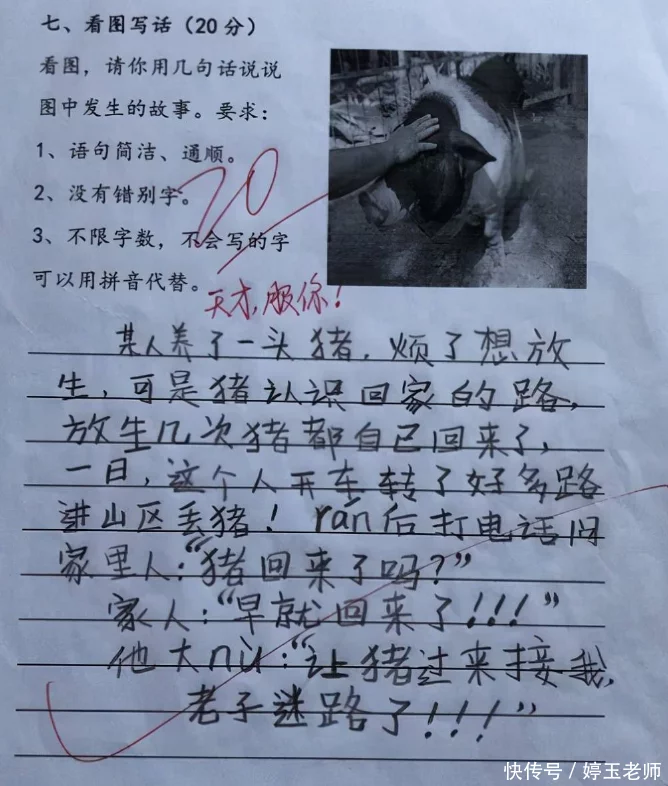 七、看图写话（20分）
看图，请你用几句话说说
图中发生的故事。要求：
1、语句简洁、通顺。
2、没有错别字。
3、不限字数，不会写的字
可以用拼音代替。
20
天才，服你！
某人养了一头猪，烦了想放
生，可是猪认识回家的路，
放生几次猪都自己回来了，
一日，这个人开车转了好多路
进山区丢猪！rán后打电话问
家里人：“猪回来了吗？”
家人：“早就回来了！！！”
他大nù：“让猪过来接我，
老子迷路了！！！”
快传号／婷玉老师